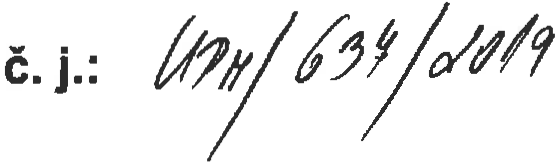 č. j.: UPM/637/2019